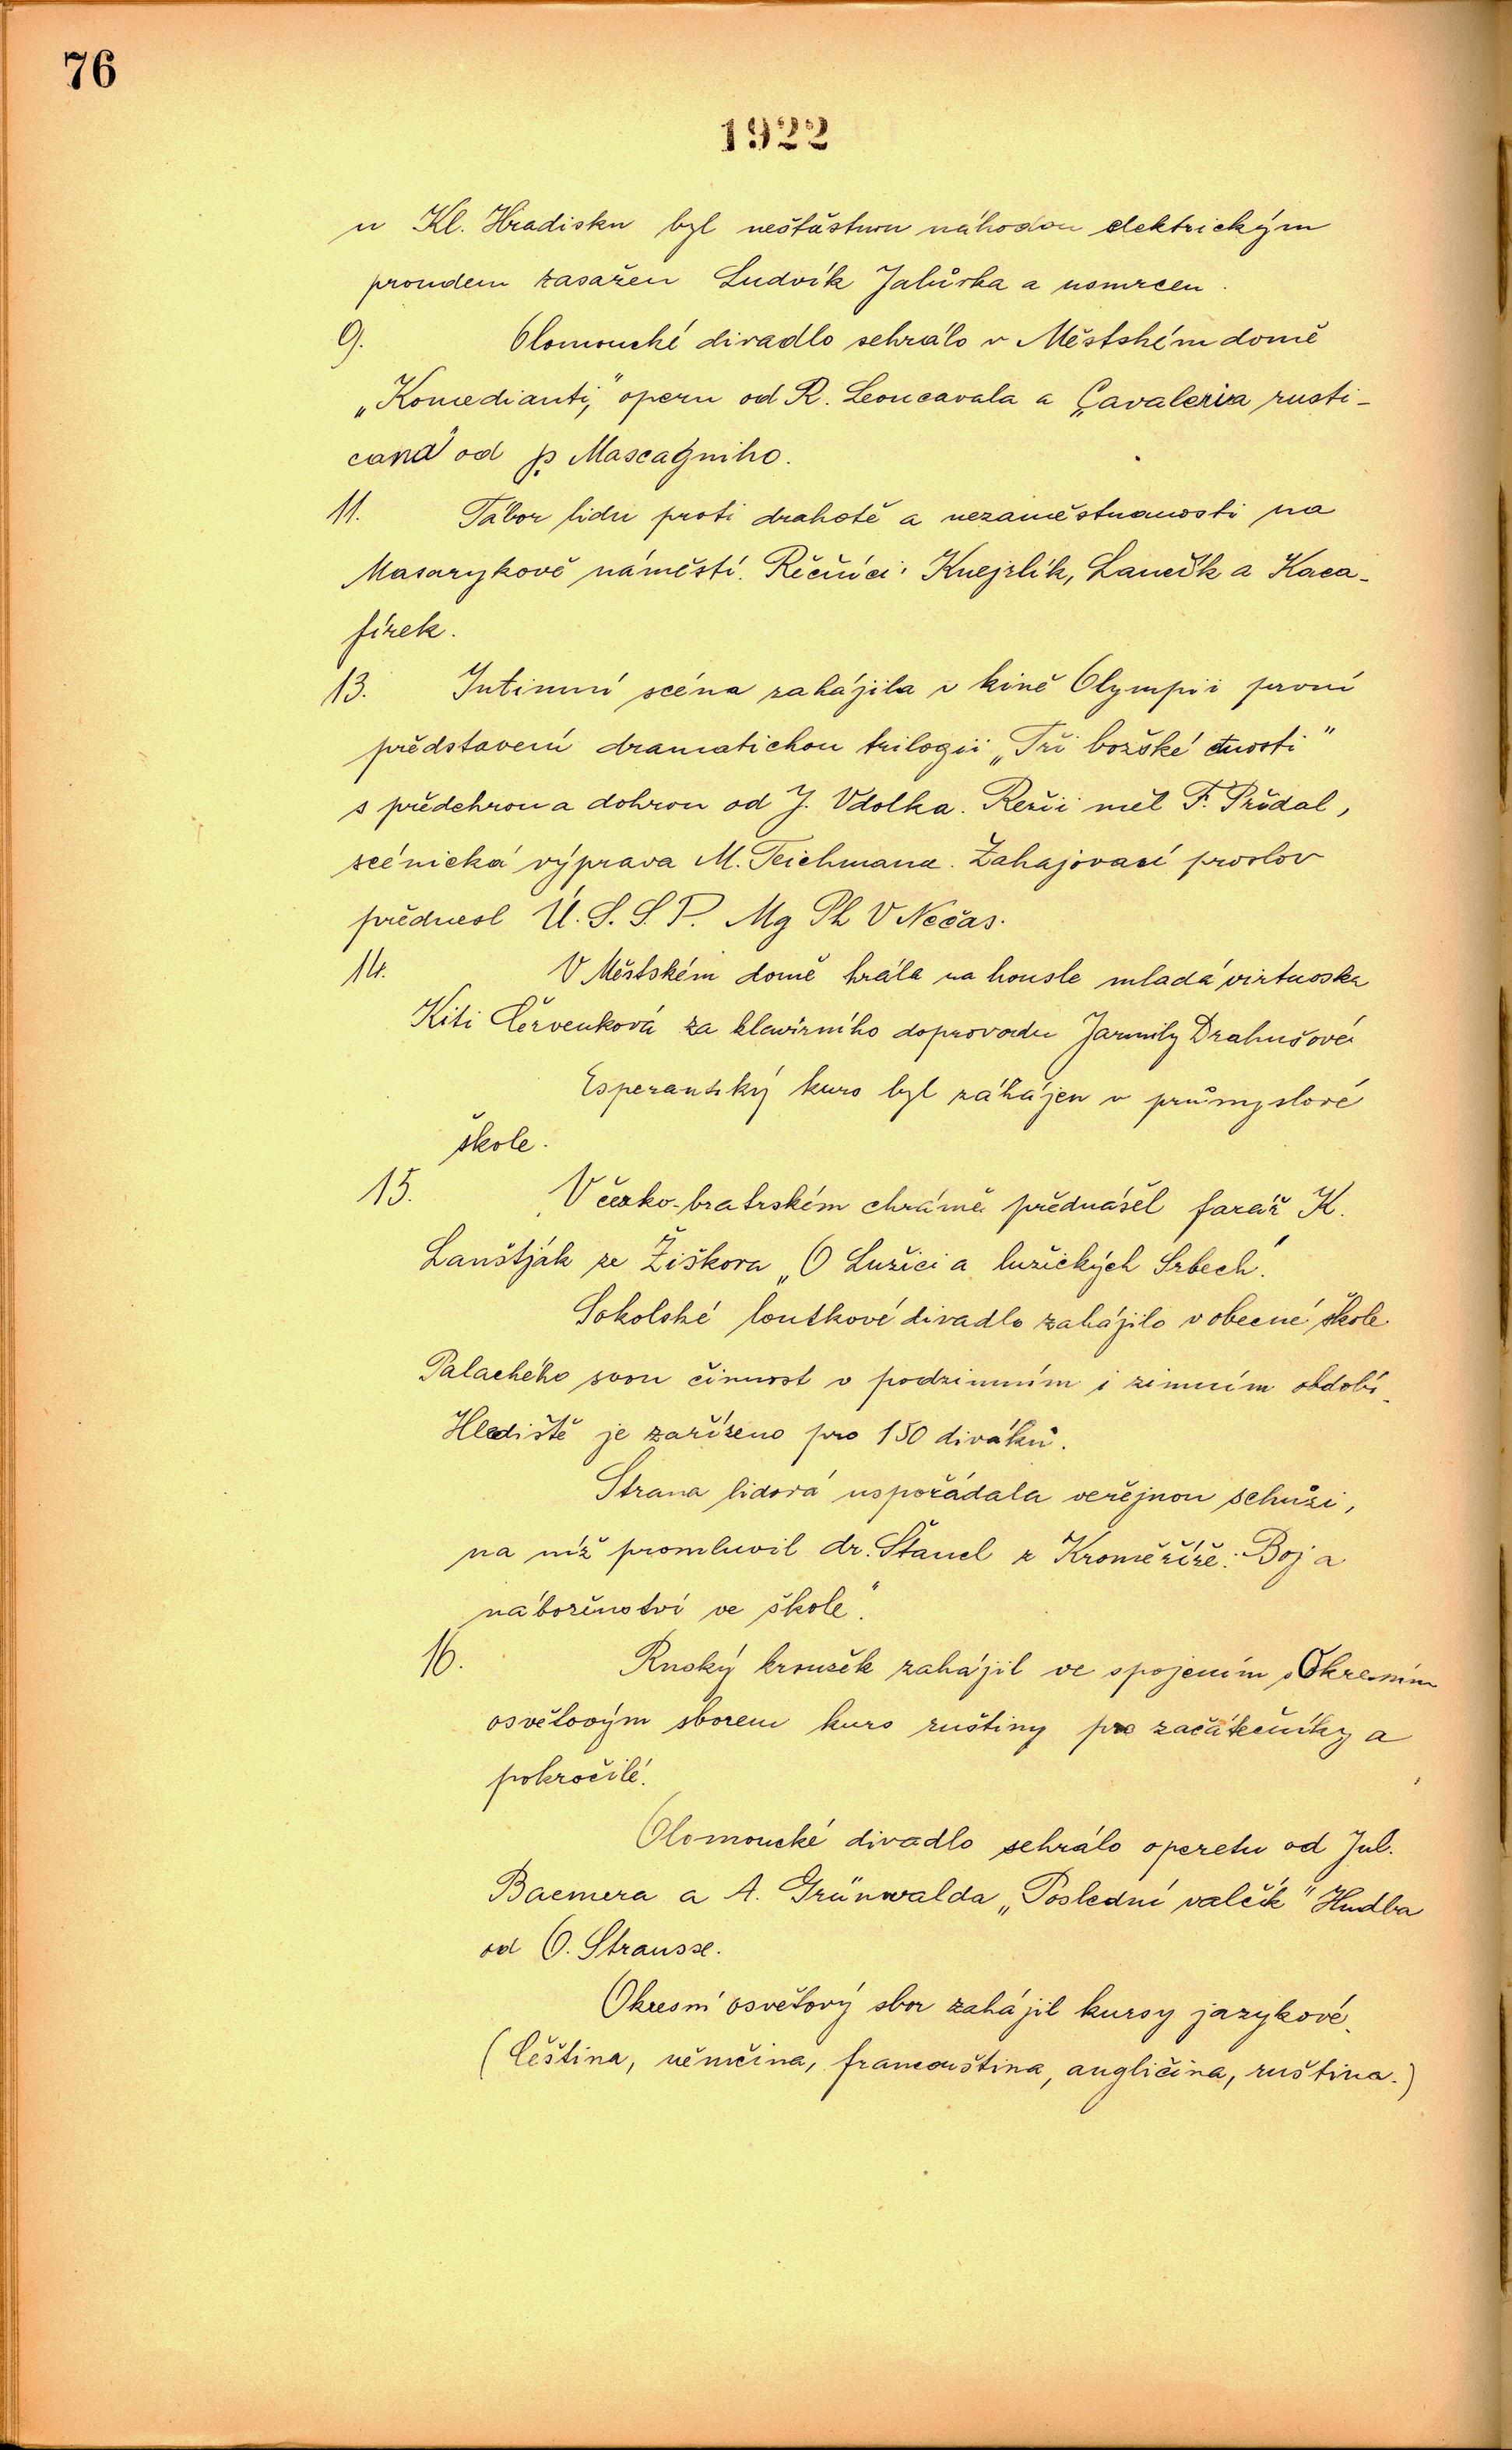 76
1922
u Kl. Hradisku byl nešťastnou náhodou elektrickým
proudem zasažen Ludvík Jalůvka a usmrcen.
9. Olomoucké divadlo sehrálo v Městském domě
„Komedianti,“ operu od R. Leoncavala a „Cavaleria rusti-
cana“ od P. Mascagniho.
11. Tábor lidu proti drahotě a nezaměstnanosti na
Masarykově náměstí. Řečníci: Knejzlík, Laneček a Kaca-
fírek.
13. Intimní scéna zahájila v kině Olympii první
představení dramatickou trilogii „Tři božské ctnosti“
s předehrou a dohrou od J. Vdolka. Režii měl F. Přidal,
scénická výprava M. Teichmana. Zahajovací proslov
přednesl Ú. S. S. P. Mg Ph V Nečas.
14. V Městském domě hrála na housle mladá virtuoska
Kiti Červenková za klavírního doprovodu Jarmily Drahušové
Esperantský kurs byl záhájen v průmyslové
škole.
15. V česko-bratrském chrámě přednášel farář K.
Lanštják ze Žižkova „O Lužici a lužických Srbech.“
Sokolské loutkové divadlo zahájilo v obecné škole
Palackého svou činnost v podzimním i zimním období.
Hlediště je zařízeno pro 150 diváků.
Strana lidová uspořádala veřejnou schůzi,
na níž promluvil dr. Štancl z Kroměříže: Boj a
náboženství ve škole“.
16. Ruský kroužek zahájil ve spojením s Okresním
osvětovým sborem kurs ruštiny pro začátečníky a
pokročilé.
Olomoucké divadlo sehrálo operetu od Jul.
Baemera a A. Grünwalda „Poslední valčík“ Hudba
od O. Strausse.
Okresní osvětový sbor zahájil kursy jazykové.
(Čeština, němčina, francouština, angličina, ruština.)